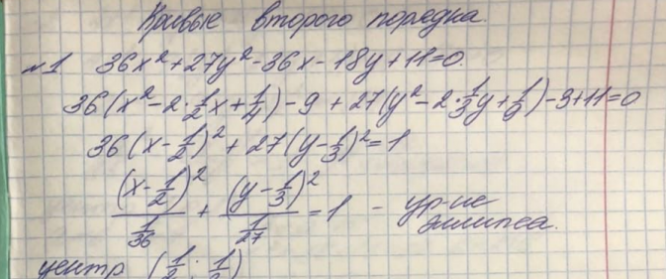 Кривые второго порядка.
№1 36x²+27y²-36x-18y+11=0.
36(x²-2·1/2x+1/4)-9+27(y²-2·1/3y+1/9)-3+11=0
36(x-1/2)²+27(y-1/3)²=1
(x-1/2)²/(1/36)+(y-1/3)²/(1/27)=1 - ур-ие эллипса.
центр (1/2; 1/3)